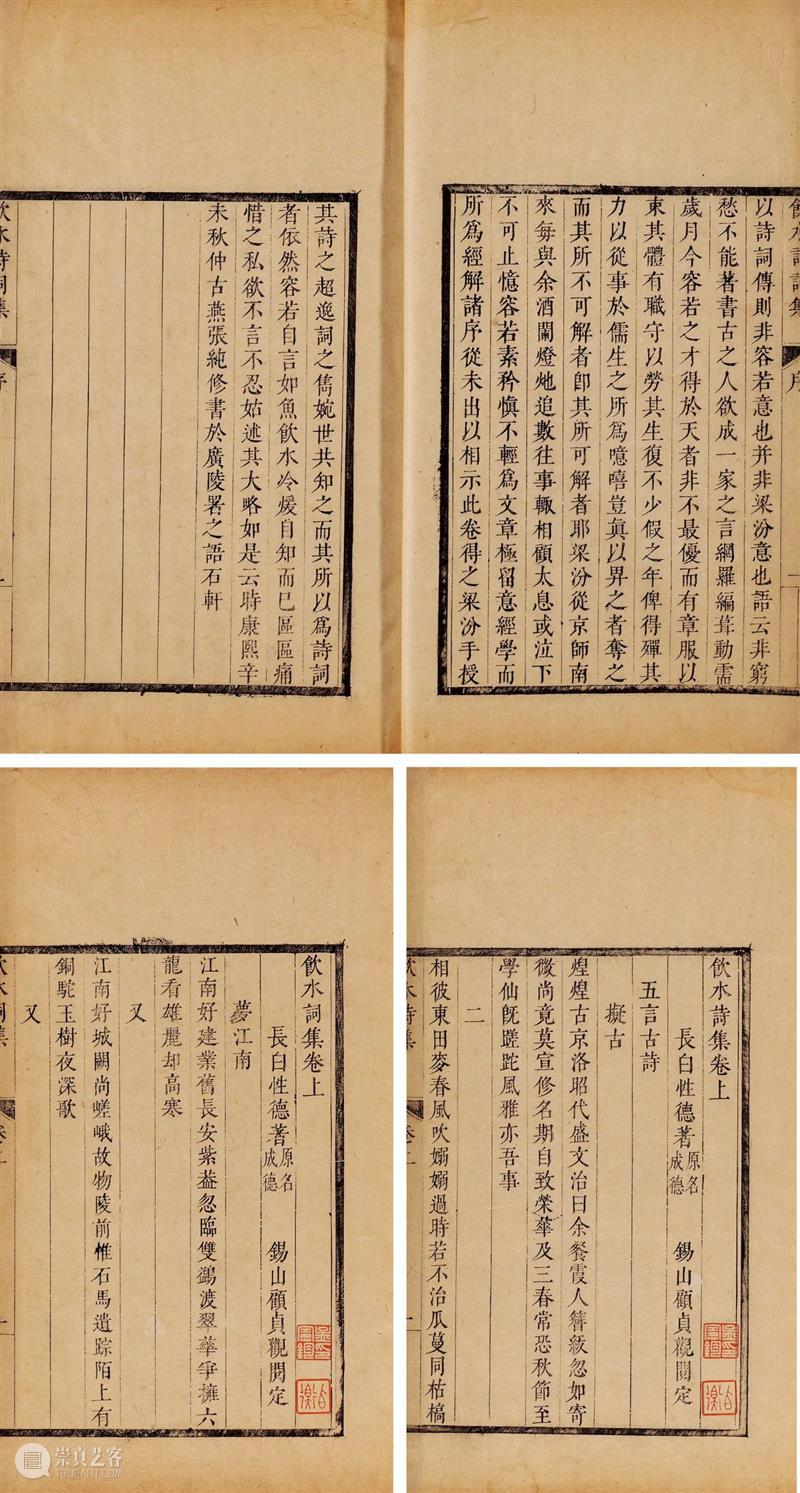 飲水詩詞集
序
一
以詩詞傳則非容若意也并非梁汾意也語云非窮
愁不能著書古之人欲成一家之言網羅編葺動需
歲月今容若之才得於天者非不最優而有章服以
束其體有職守以勞其生復不少假之年俾得殫其
力以從事於儒生之所爲噫嘻豈眞以畀之者奪之
而其所不可解者卽其所可解者耶梁汾從京師南
來每與余酒闌燈灺追數往事輒相顧太息或泣下
不可止憶容若素矜愼不輕爲文章極留意經學而
所爲經解諸序從未出以相示此卷得之梁汾手授
其詩之超逸詞之雋婉世共知之而其所以爲詩詞
者依然容若自言如魚飲水冷煖自知而已區區痛
惜之私欲不言不忍姑述其大略如是云時康熙辛
未秋仲古燕張純修書於廣陵署之語石軒
飲水詩詞集
序
飲水詩集卷上
長白性德著原名成德
錫山顧貞觀閱定
五言古詩
擬古
煌煌古京洛昭代盛文治日余餐霞人簪紱忽如寄
微尚竟莫宣修名期自致榮華及三春常恐秋節至
學仙旣蹉跎風雅亦吾事
二
相彼東田麥春風吹嫋嫋過時若不治瓜蔓同枯槁
飲水詩集
飲水詞集卷上
長白性德著原名成德
錫山顧貞觀閱定
夢江南
江南好建業舊長安紫葢忽臨雙鷁渡翠華爭擁六
龍看雄麗却高寒
又
江南好城闕尚嵯峨故物陵前惟石馬遺踪陌上有
銅駝玉樹夜深歌
又
飲水詞集
崇真艺客
TRUEART.COM